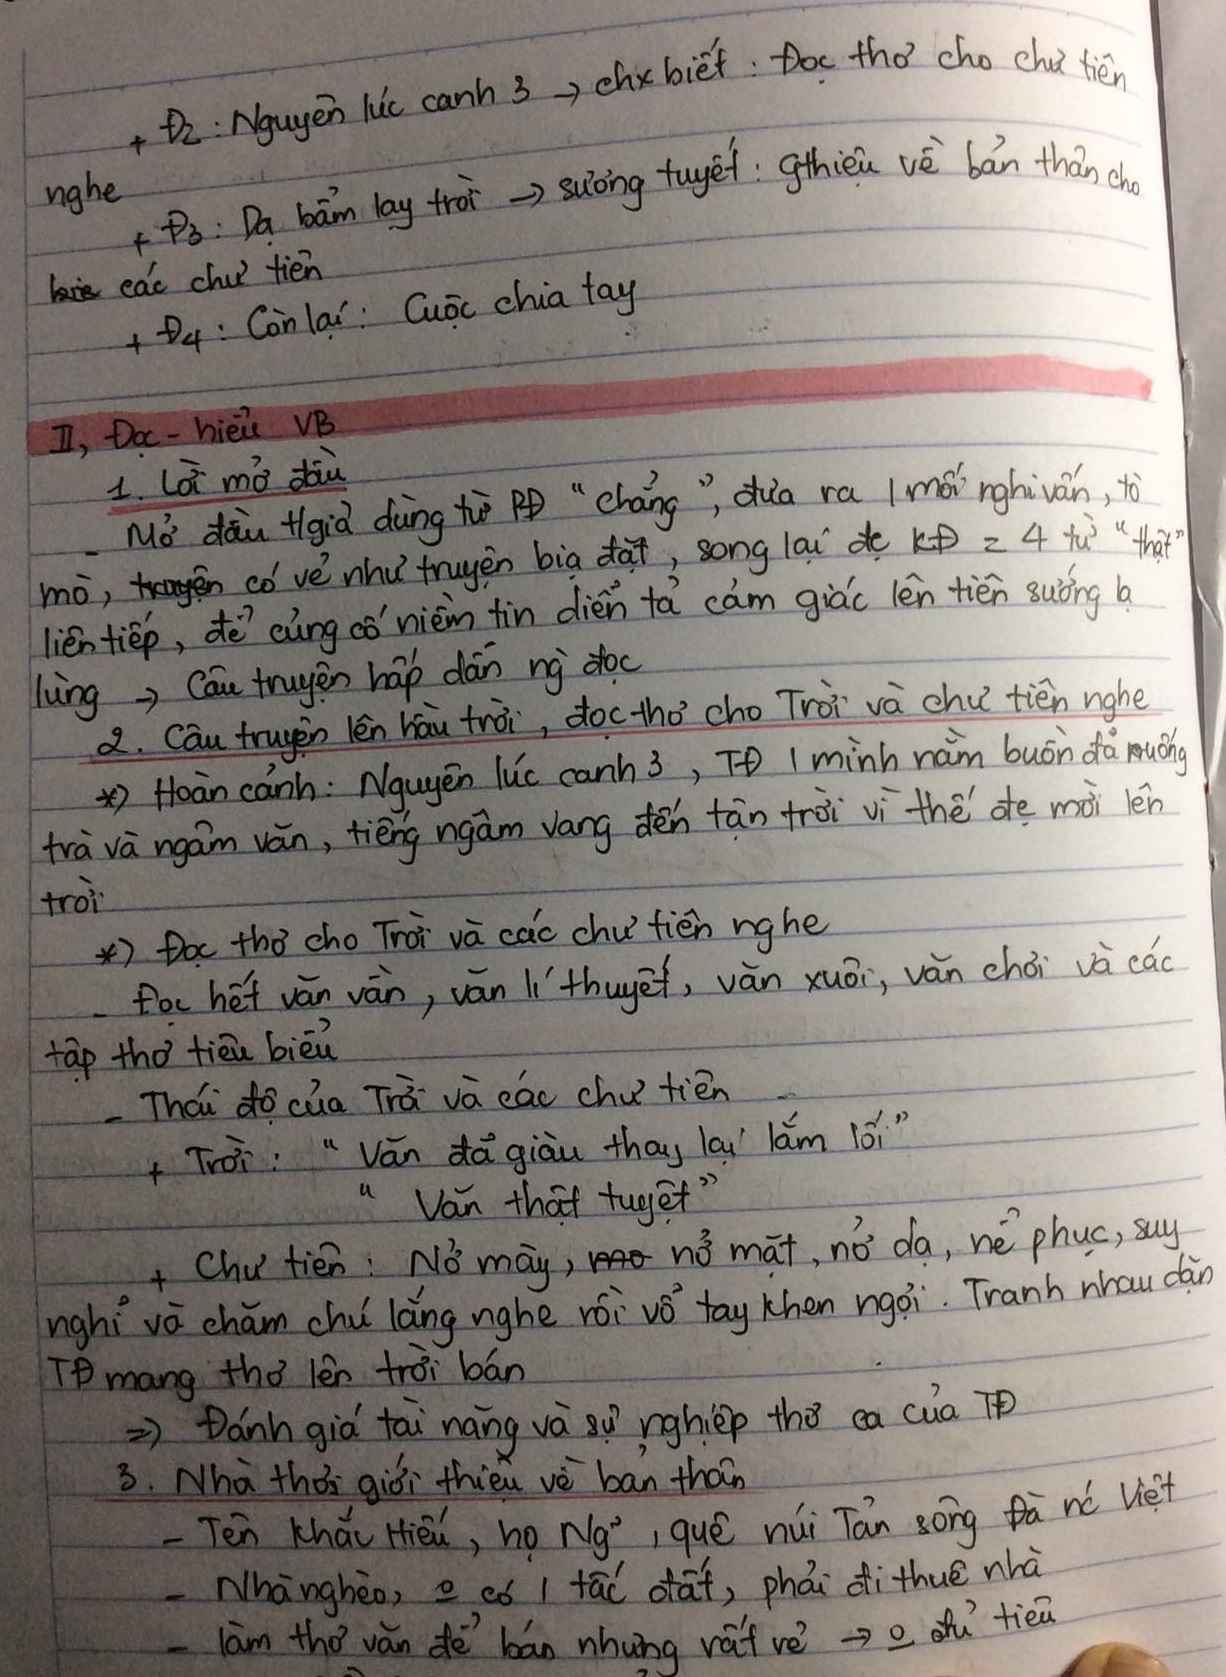 + Đ2 : Nguyên lúc canh 3 → chx biết : Đọc thơ cho chư tiên
nghe
+ Đ3 : Dạ bẩm lạy trời → sương tuyết : gthiệu về bản thân cho
các chư tiên
+ Đ4 : Còn lại : Cuộc chia tay
II, Đọc - hiểu VB
1. Lời mở đầu
- Mở đầu t/giả dùng từ PĐ "chẳng", đưa ra 1 mối nghi vấn, tò
mò, truyện có vẻ như truyện bịa đặt, song lại đc KĐ = 4 từ "thật"
liên tiếp, để củng cố niềm tin diễn tả cảm giác lên tiên sướng lạ
lùng → Câu truyện hấp dẫn ng đọc
2. Câu truyện lên hầu trời, đọc thơ cho Trời và chư tiên nghe
*) Hoàn cảnh : Nguyên lúc canh 3, TĐ 1 mình nằm buồn đã uống
trà và ngâm văn, tiếng ngâm vang đến tận trời vì thế đc mời lên
trời
*) Đọc thơ cho Trời và các chư tiên nghe
- Đọc hết văn vần, văn lí thuyết, văn xuôi, văn chơi và các
tập thơ tiêu biểu
- Thái độ của Trời và các chư tiên
+ Trời : "Văn đã giàu thay lại lắm lối"
"Văn thật tuyệt"
+ Chư tiên : Nở mày, nở mặt, nở dạ, nể phục, suy
nghĩ và chăm chú lắng nghe rồi vỗ tay khen ngợi. Tranh nhau dặn
TĐ mang thơ lên trời bán
=> Đánh giá tài năng và sự nghiệp thơ ca của TĐ
3. Nhà thơ giới thiệu về bản thân
- Tên Khắc Hiếu, họ Ng~, quê núi Tản sông Đà nc Việt
- Nhà nghèo, o có 1 tấc đất, phải đi thuê nhà
- làm thơ văn để bán nhưng rất rẻ → o đủ tiêu